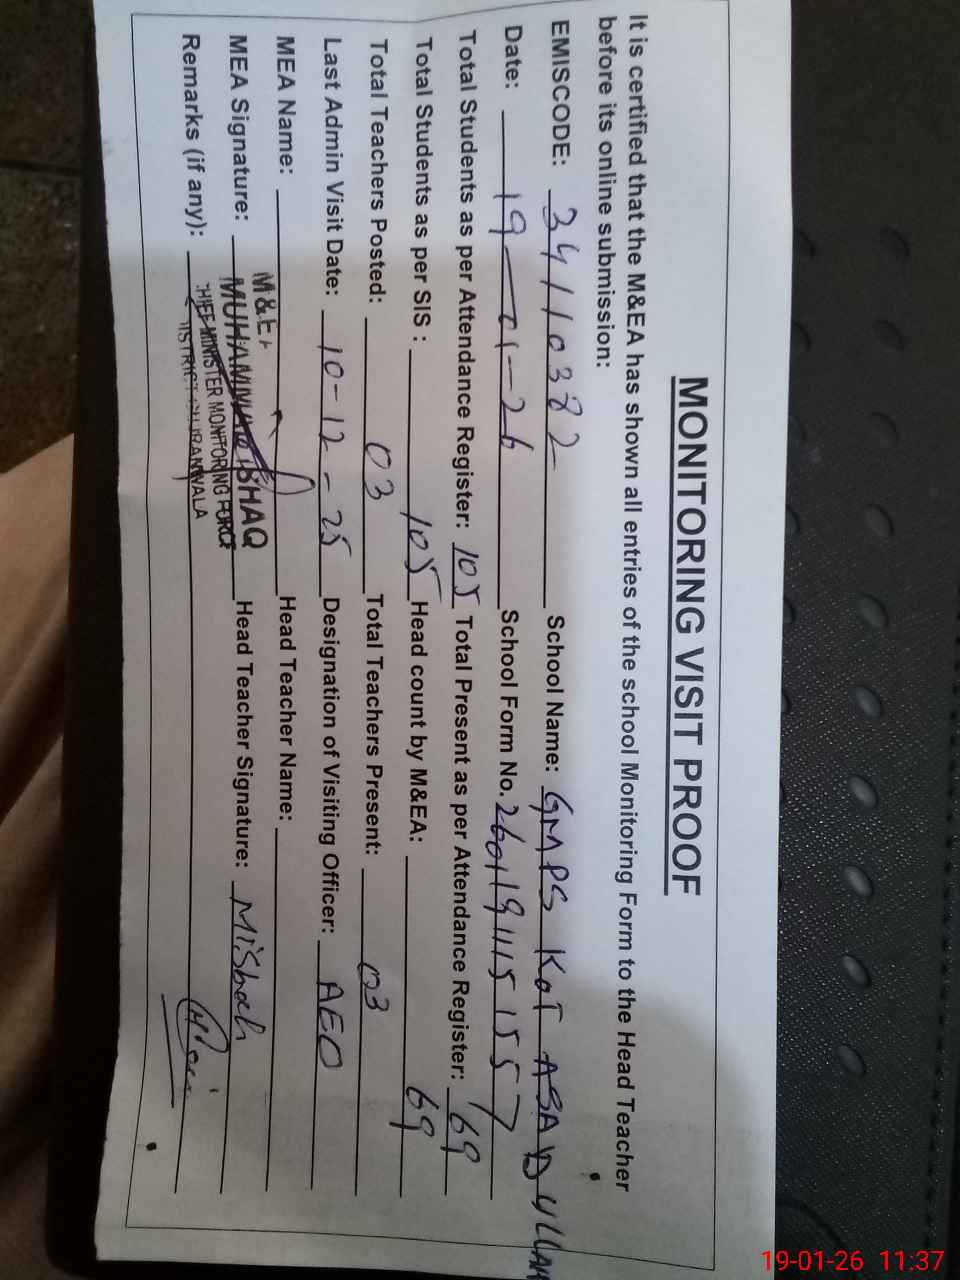 MONITORING VISIT PROOF
It is certified that the M&EA has shown all entries of the school Monitoring Form to the Head Teacher
before its online submission:
EMISCODE: 34110382 School Name: GMPS KOT ASADULLAH
Date: 19-01-26 School Form No. 26011911151557
Total Students as per Attendance Register: 105 Total Present as per Attendance Register: 69
Total Students as per SIS : 105 Head count by M&EA: 69
Total Teachers Posted: 03 Total Teachers Present: 03
Last Admin Visit Date: 10-12-25 Designation of Visiting Officer: AEO
MEA Name: Head Teacher Name:
M&EA
MEA Signature: MUHAMMAD ISHAQ Head Teacher Signature: Misbah
CHIEF MINISTER MONITORING FORCE
Remarks (if any): DISTRICT GUJRANWALA
19-01-26 11:37